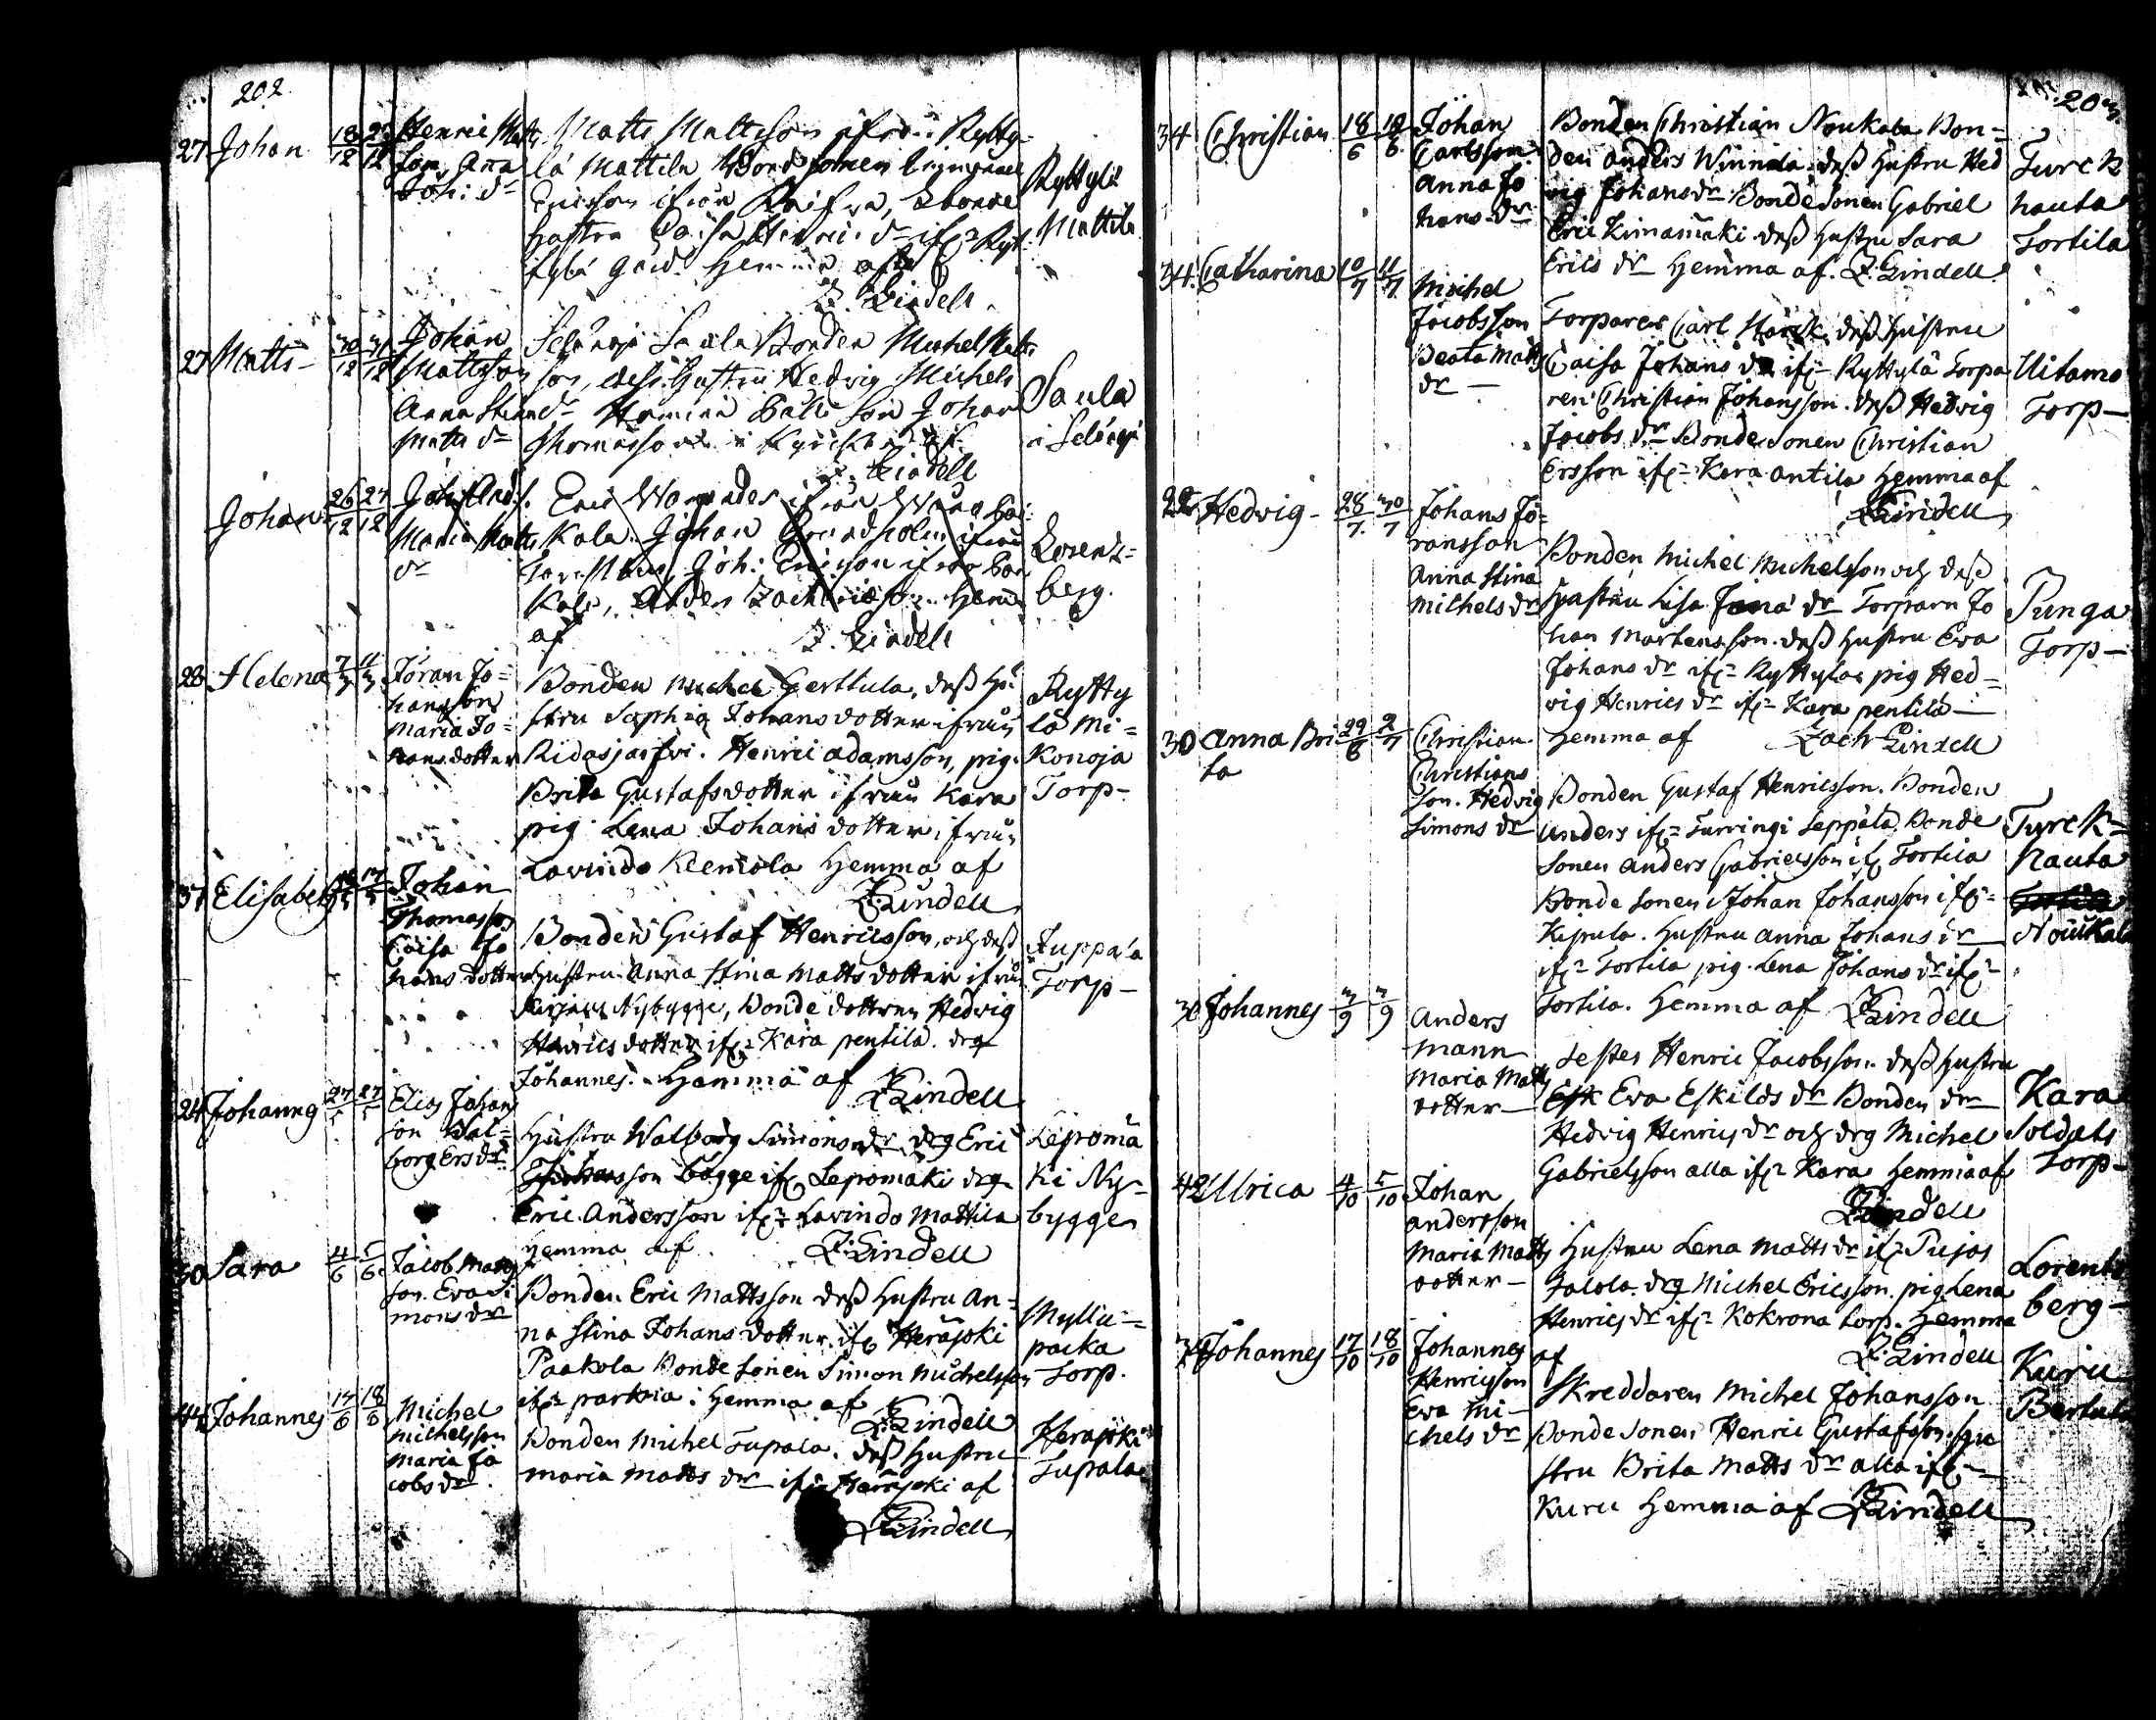 202
27 Johan 18/12 27/12 Henric Matts
son, Ana
Joh: dr
Matts Mattsson ifrån Rytty-
lä Mattila Bondsonen
Ericsson ifrån
Hustru Caisa Henrics dr ifrn Ryt
tylä gård. Hemma af
Z. Lindell
Ryttylä
Mattila
27 Matts 30/12 31/12 Johan
Mattsson
Anna Stina
Matts dr
Selänoja Saula Bonden Michel Matts
son, dess Hustru Hedvig Michels
dr Hemma Johan
Thomasson i af
Z. Lindell
Saula
i Selänoja
Johan 26/12 27/12 Joh: And:s.
Maria Matts
dr
Eric ifrån
kala. Johan Grundholm ifrån
Joh: Ericson ifrån
kala, Anders Zachriesson. Hem
af
Z. Lindell
Lorentz=
berg.
28 Helena 7/3 11/3 Jöran Jo=
hansson
Maria Jo=
hans dotter
Bonden Michel Gerttula, dess hu
stru Sophia Johans dotter ifrån
Ridasjärfvi. Henric Adamsson, pig.
Brita Gustafsdotter ifrån Kara
pig. Lena Johans dotter ifrån
Lavindo Hemola Hemma af
Z. Lindell
Rytty
lä Mi=
konoja
Torp-
37 Elisabeth 16/5 17/5 Johan
Thomasson
Caisa Jo
hans dotter
Bonden Gustaf Henricsson, och dess
Hustru Anna Stina Matts dotter ifrån
Nybygge, Bonde dottren Hedvig
Henrics dotter ifrn Kara pentila. drg
Johannes. Hemma af Z. Lindell
Auppala
Torp-
24 Johannes 27/5 27/5 Elias Johans
son Wal=
borg Ers dr.
Hustru Walborg Simons dr drg Eric
Johansson bägge ifrn Lepomäki drg
Eric Andersson ifrn Lavindo Mattila
Hemma af Z. Lindell
Lepomä
ki Ny-
bygge
30 Sara 4/6 5/6 Jacob Matts
son. Eva Si
mons dr
Bonden Eric Mattsson dess Hustru An=
na Stina Johans dotter ifrn Heräjoki
Paakola Bonde sonen Simon Michelsson
ifrn parkoia: Hemma af Z. Lindell
Myllu=
packa
Torp.
44 Johannes 17/6 18/6 Michel
Michelsson
Maria Ja
cobs dr
Bonden Michel Tupala. dess Hustru
Maria Matts dr ifrn Heräjoki af
Z. Lindell
Heräjoki
Tupala
203
34 Christian 18/6 18/6 Johan
Carlsson.
Anna Jo
hans dr
Bonden Christian Noukala Bon=
den Anders Winnila dess Hustru Hed
vig Johans dr Bonde Sonen Gabriel
Eric Kinamäki dess Hustru Sara
Erics dr Hemma af. Z. Lindell
Turck
hauta
Tortila
34. Catharina 10/7 11/7 Michel
Jacobsson
Beata Matts
dr -
Torparen Carl Starck. dess Hustru
Caisa Johans dr ifrn Ryttylä Torpa
ren Christian Johansson. dess Hedvig
Jacobs dr Bonde sonen Christian
Ersson ifrn Kara Antila Hemma af
Z. Lindell
Uitamo
Torp-
22 Hedvig - 28/7 30/7 Johans Jö=
ransson
Anna Stina
Michels dr
Bonden Michel Michelsson och dess
Hustru Lisa dr Torparn Jo
han Mårtensson. dess Hustru Eva
Johans dr ifrn Ryttylä pig Hed=
vig Henrics dr ifrn Kara pentilä -
Hemma af Zach Lindell
Punga
Torp-
30 Anna Bri
ta 29/6 2/7 Christian
Christians
son. Hedvig
Simons dr
Bonden Gustaf Henricsson. Bonden
Anders ifrn Turringi Seppälä. Bonde
sonen Anders Gabrielsson ifrn Tortila
Bonde sonen Johan Johansson ifrn
Kipula. Hustru Anna Johans dr
ifrn Tortila pig. Lena Johans dr ifrn
Tortila. Hemma af Z. Lindell
Turck=
hauta
Tortila
Noukala
30 Johannes 3/9 3/9 Anders
Mann
Maria Matts
dotter -
Testes Henric Jacobsson. dess Hustru
Esk Eva Eskilds dr Bonden dr
Hedvig Henrics dr och drg Michel
Gabrielsson alla ifrn Kara Hemma af
Z. Lindell
Kara
Soldats
Torp-
42 Ulrica 4/10 5/10 Johan
Andersson
Maria Matts
dotter -
Hustru Lena Matts dr ifrn Pujas
Jalola. drg Michel Ericsson. pig Lena
Henrics dr ifrn Kokrona torp. Hemma
af Z. Lindell
Lorents
berg-
Johannes 17/10 18/10 Johannes
Henricsson
Eva Mi-
chels dr
Skreddaren Michel Johansson
Bonde sonen Henric Gustafsson. Hu
stru Brita Matts dr alla ifrn
Kuru Hemma af Z. Lindell
Kuru
Bertula